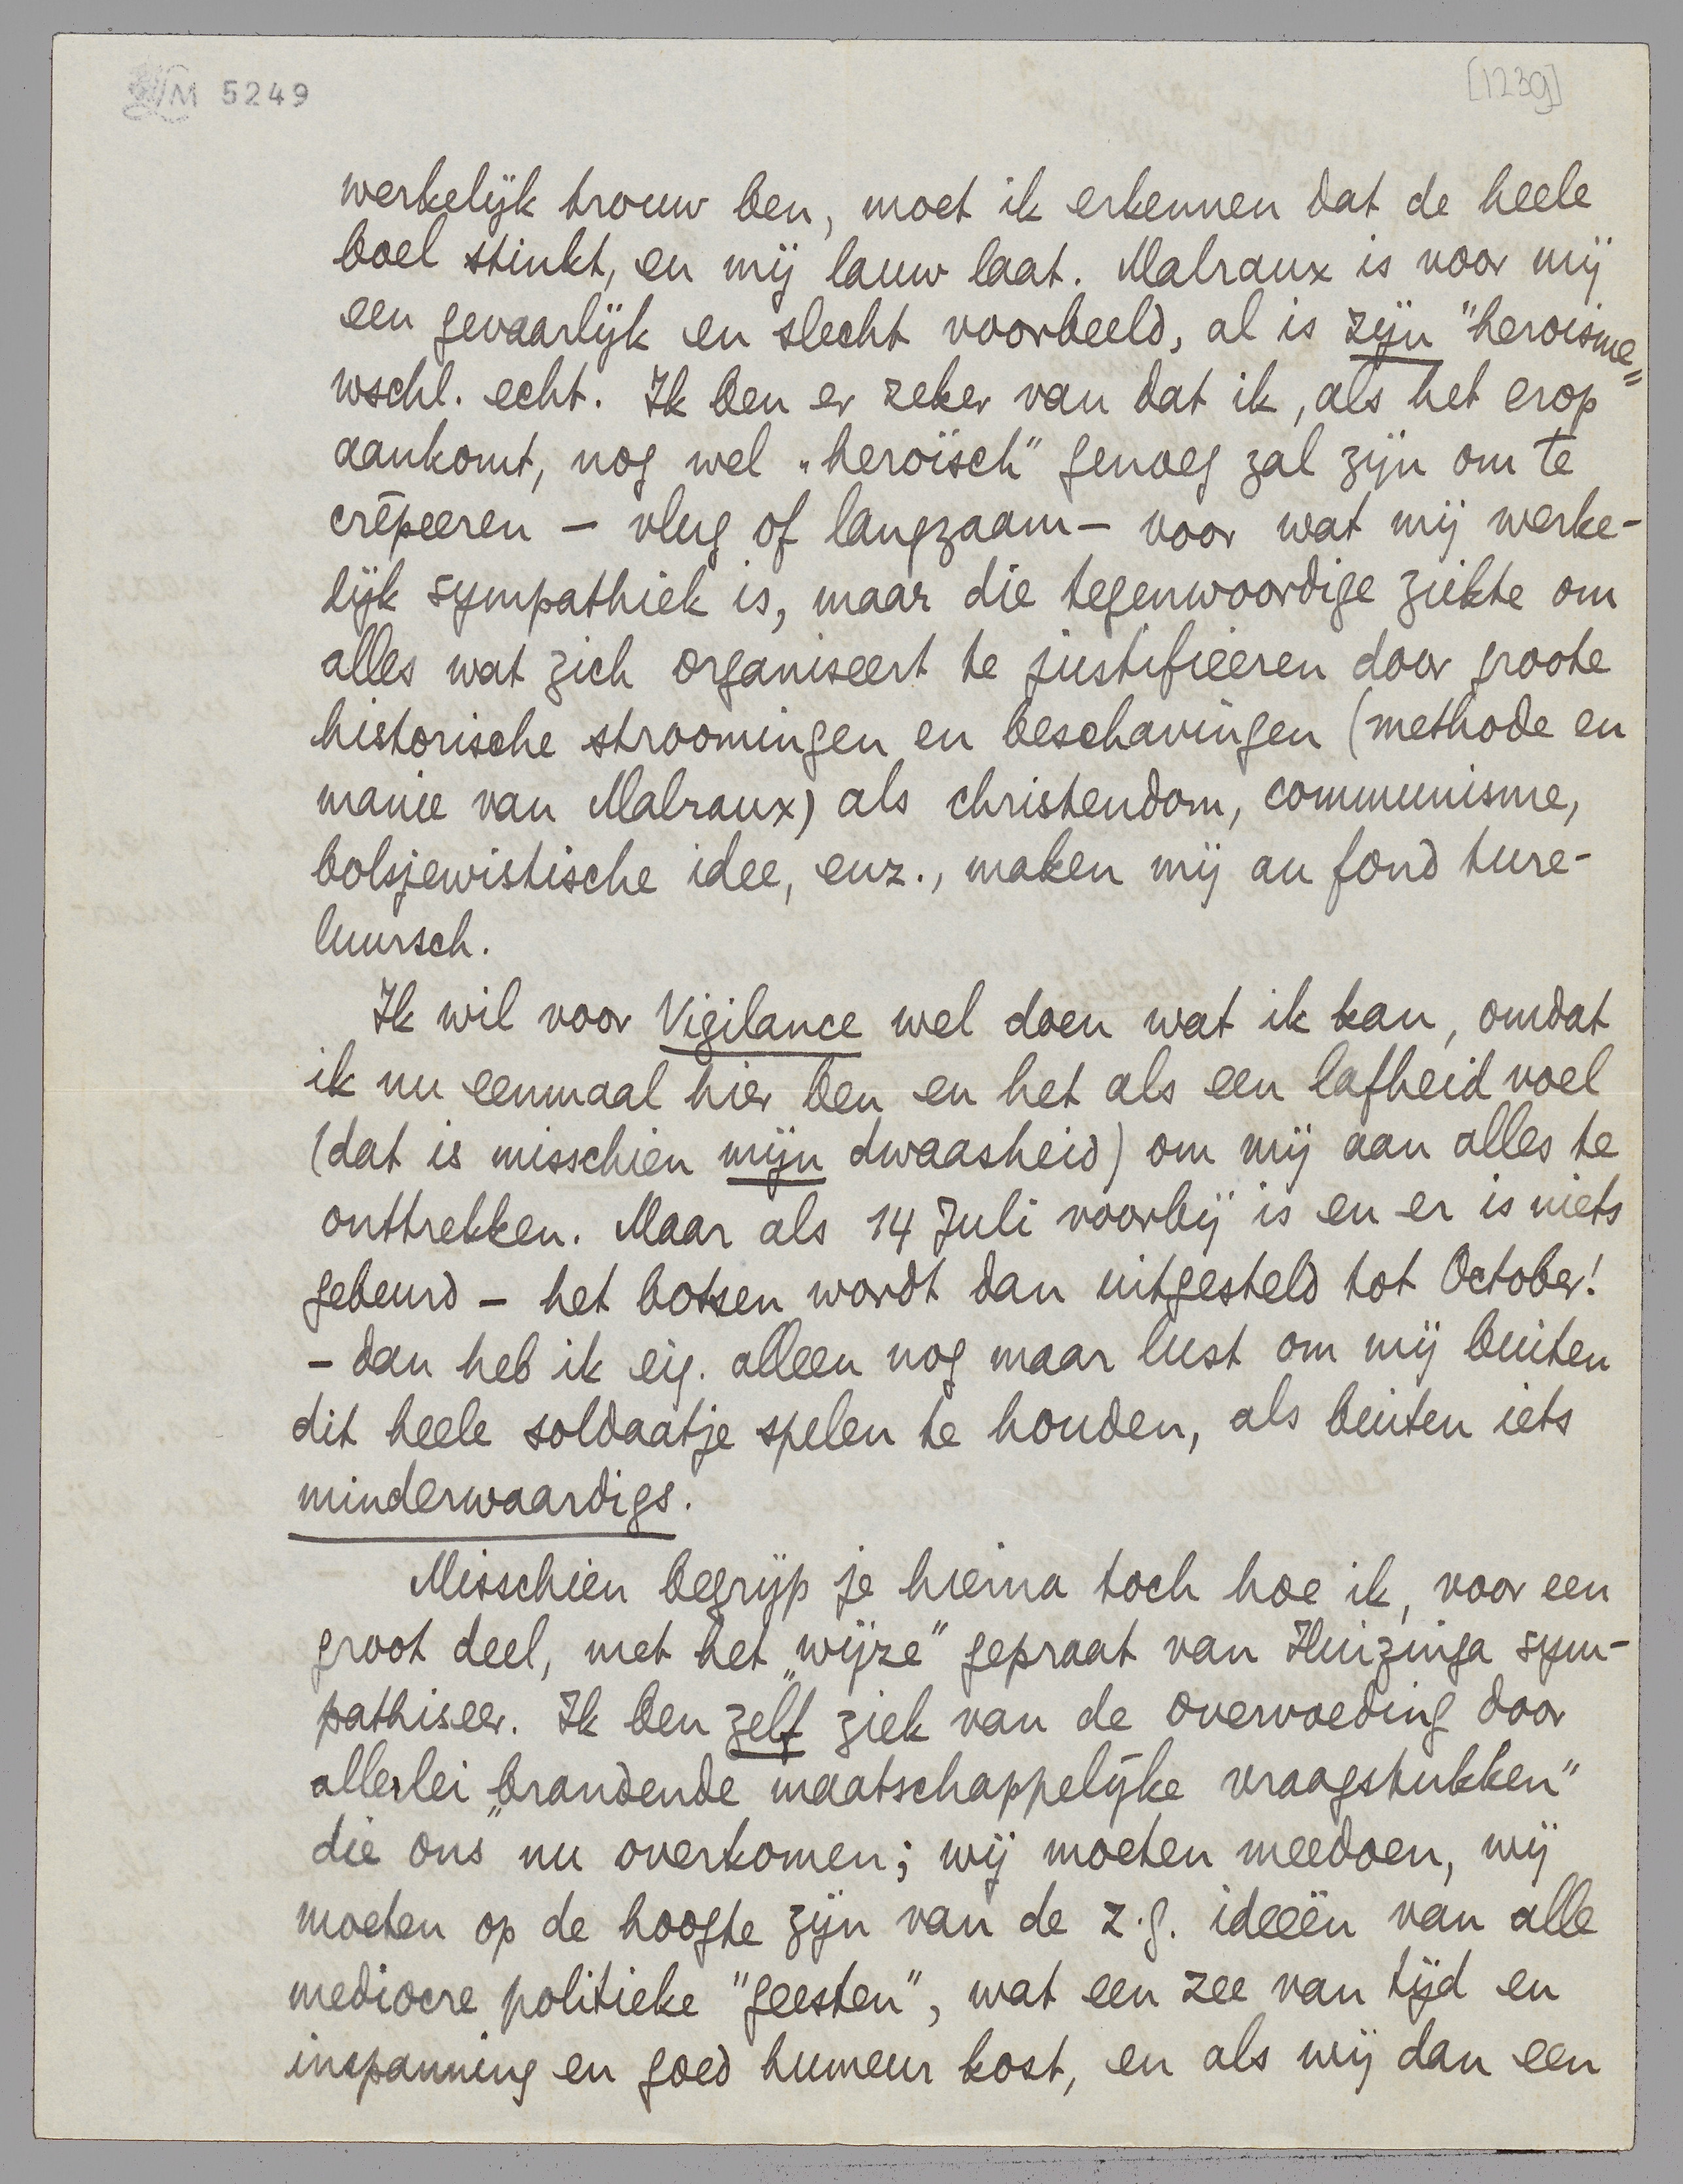 M 5249
[1239]
werkelijk trouw ben, moet ik erkennen dat de heele
boel stinkt, en mij lauw laat. Malraux is voor mij
een gevaarlijk en slecht voorbeeld, al is zijn "heroisme"
wschl. echt. Ik ben er zeker van dat ik, als het erop
aankomt, nog wel „heroïsch" genoeg zal zijn om te
crêpeeren – vlug of langzaam – voor wat mij werke-
lijk sympathiek is, maar die tegenwoordige ziekte om
alles wat zich organiseert te justifieeren door groote
historische stroomingen en beschavingen (methode en
manie van Malraux) als christendom, communisme,
bolsjewistische idee, enz., maken mij au fond ture-
luursch.
Ik wil voor Vigilance wel doen wat ik kan, omdat
ik nu eenmaal hier ben en het als een lafheid voel
(dat is misschien mijn dwaasheid) om mij aan alles te
onttrekken. Maar als 14 Juli voorbij is en er is niets
gebeurd – het botsen wordt dan uitgesteld tot October!
– dan heb ik eig. alleen nog maar lust om mij buiten
dit heele soldaatje spelen te houden, als buiten iets
minderwaardigs.
Misschien begrijp je hierna toch hoe ik, voor een
groot deel, met het „wijze" gepraat van Huizinga sym-
pathiseer. Ik ben zelf ziek van de overvoeding door
allerlei „brandende maatschappelijke vraagstukken"
die ons nu overkomen; wij moeten meedoen, wij
moeten op de hoogte zijn van de z.g. ideeën van alle
mediocre politieke "geesten", wat een zee van tijd en
inspanning en goed humeur kost, en als wij dan een